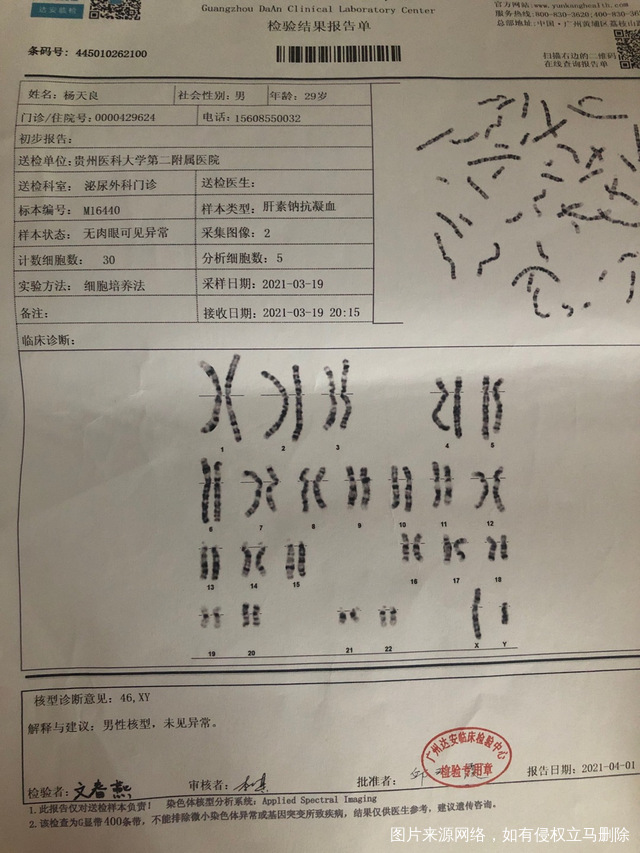 达安临检
Guangzhou DaAn Clinical Laboratory Center
官方网站:www.yunkanghealth.com
服务热线:800-830-3620;400-830-36
总部地址:中国·广州黄埔区荔枝山路
检验结果报告单
条码号: 445010262100
扫描右边的二维码
在线查询报告单
姓名:杨天良 社会性别:男 年龄:29岁
门诊/住院号:0000429624 电话:15608550032
初步报告:
送检单位:贵州医科大学第二附属医院
送检科室: 泌尿外科门诊 送检医生:
标本编号: M16440 样本类型:肝素钠抗凝血
样本状态: 无肉眼可见异常 采集图像:2
计数细胞数: 30 分析细胞数:5
实验方法: 细胞培养法 采样日期:2021-03-19
备注: 接收日期:2021-03-19 20:15
临床诊断:
1 2 3 4 5
6 7 8 9 10 11 12
13 14 15 16 17 18
19 20 21 22 X Y
核型诊断意见:46,XY
解释与建议:男性核型,未见异常。
广州达安临床检验中心
检验专用章
检验者:文春燕 审核者: 批准者: 报告日期:2021-04-01
1.此报告仅对送检样本负责! 染色体核型分析系统:Applied Spectral Imaging
2.该检查为G显带400条带,不能排除微小染色体异常或基因突变所致疾病,结果仅供医生参考,建议遗传咨询。
图片来源网络,如有侵权立马删除